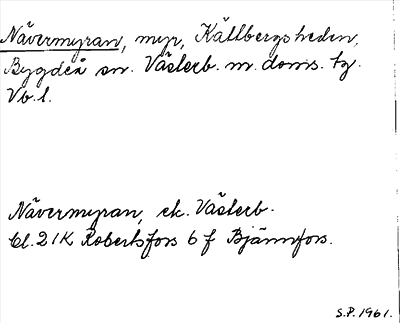 Nävermyran, myr, Källbergsheden,
Bygdeå sn. Västerb. m. doms. tg.
Vb. l.
Nävermyran, ek. Västerb.
Bl. 21K Robertsfors 6 f Bjännfors.
S.P. 1961.